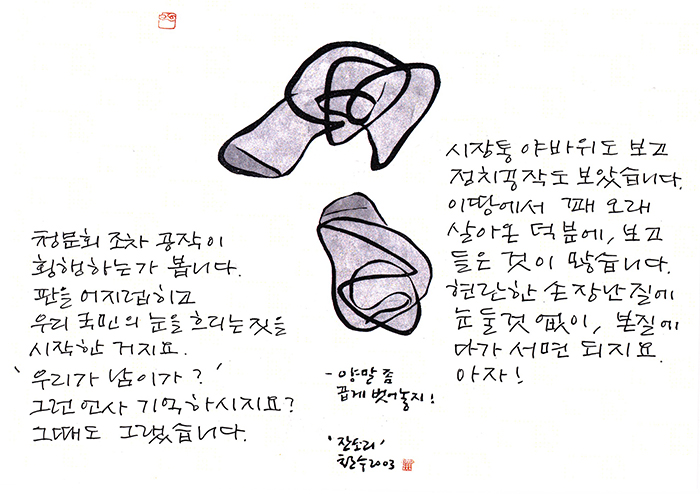 청문회 조차 공작이
횡행하는가 봅니다.
판을 어지럽히고
우리 국민의 눈을 흐리는 짓을
시작한 거지요.
'우리가 남이가?'
그런 인사 기억하시지요?
그때도 그랬습니다.
- 양말 좀
곱게 벗어놓지!
'잔소리'
철수 2003
시장통 야바위도 보고
정치공작도 보았습니다.
이땅에서 꽤 오래
살아온 덕분에, 보고
들은 것이 많습니다.
현란한 손장난질에
눈 둘것 없이, 본질에
다가 서면 되지요.
아자!